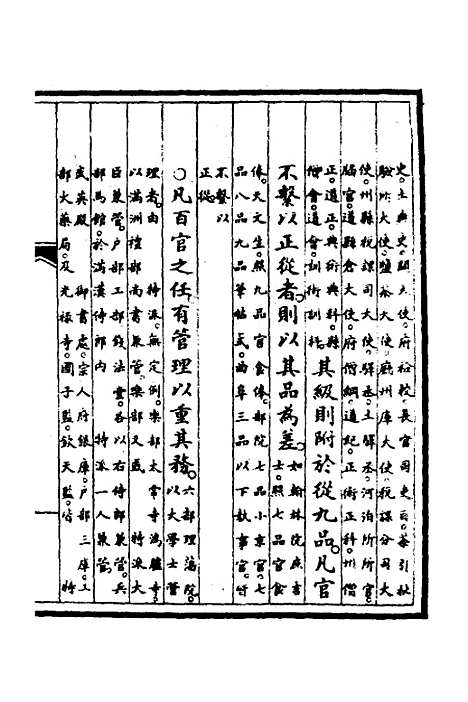 史。主典史。關大使。府檢校。長官司吏目。茶引批
驗所大使。鹽茶大使。廳州庫大使。稅課分司大
使。州縣稅課司大使。驛丞。土驛丞。河泊所所官。
牐官。道縣倉大使。府僧綱。道紀。正術正科。州僧
正。道正。典術。典科。縣
僧會。道會。訓術訓科。
其級則附於從九品。凡官
不繫以正從者。則以其品為差。
如翰林院庶吉
士。照七品官食
俸。天文生。照九品官食俸。部院七品小京官。七
品八品九品筆帖式。曲阜三品以下執事官。皆
不繫以
正從。
○凡百官之任。有管理以重其務。
六部理藩院。
以大學士管
理者。由 特派。無定例。樂部太常寺鴻臚寺。
以滿洲禮部尚書兼管。樂部又或 特派大
臣兼管。戶部工部錢法堂。各以右侍郎兼管。兵
部馬館。於滿漢侍郎內 特派一人兼管。
武英殿 御書處。宗人府銀庫。戶部三庫。工
部火藥局。及光祿寺。國子監。欽天監。皆 特